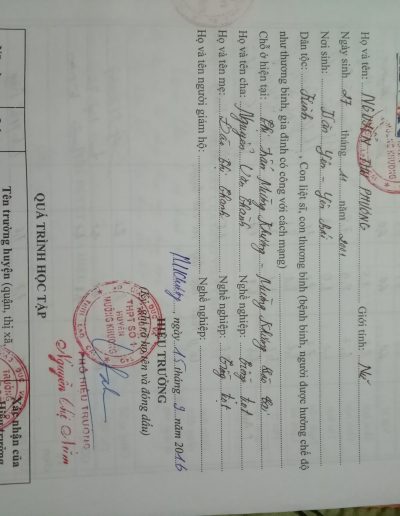 Họ và tên: NGUYỄN THU PHƯƠNG Giới tính: Nữ
Ngày sinh 27 tháng 11 năm 2001
Nơi sinh: Văn Yên - Yên Bái
Dân tộc: Kinh, Con liệt sĩ, con thương binh (bệnh binh, người được hưởng chế độ
như thương binh, gia đình có công với cách mạng)
Chỗ ở hiện tại: Thị trấn Mường Khương - Mường Khương - Lào Cai
Họ và tên cha: Nguyễn Văn Thành Nghề nghiệp:
Họ và tên mẹ: Nghề nghiệp:
Họ và tên người giám hộ: Nghề nghiệp:
M/Khương, ngày 15 tháng 9 năm 2016
HIỆU TRƯỞNG
(Ký, ghi rõ họ tên và đóng dấu)
TRƯỜNG
THPT SỐ
HUYỆN
MƯỜNG KHƯƠNG
PHÓ HIỆU TRƯỞNG
Nguyễn Thị
QUÁ TRÌNH HỌC TẬP
Tên trường huyện (quận, thị xã,
Xác nhận của
Hiệu trưởng